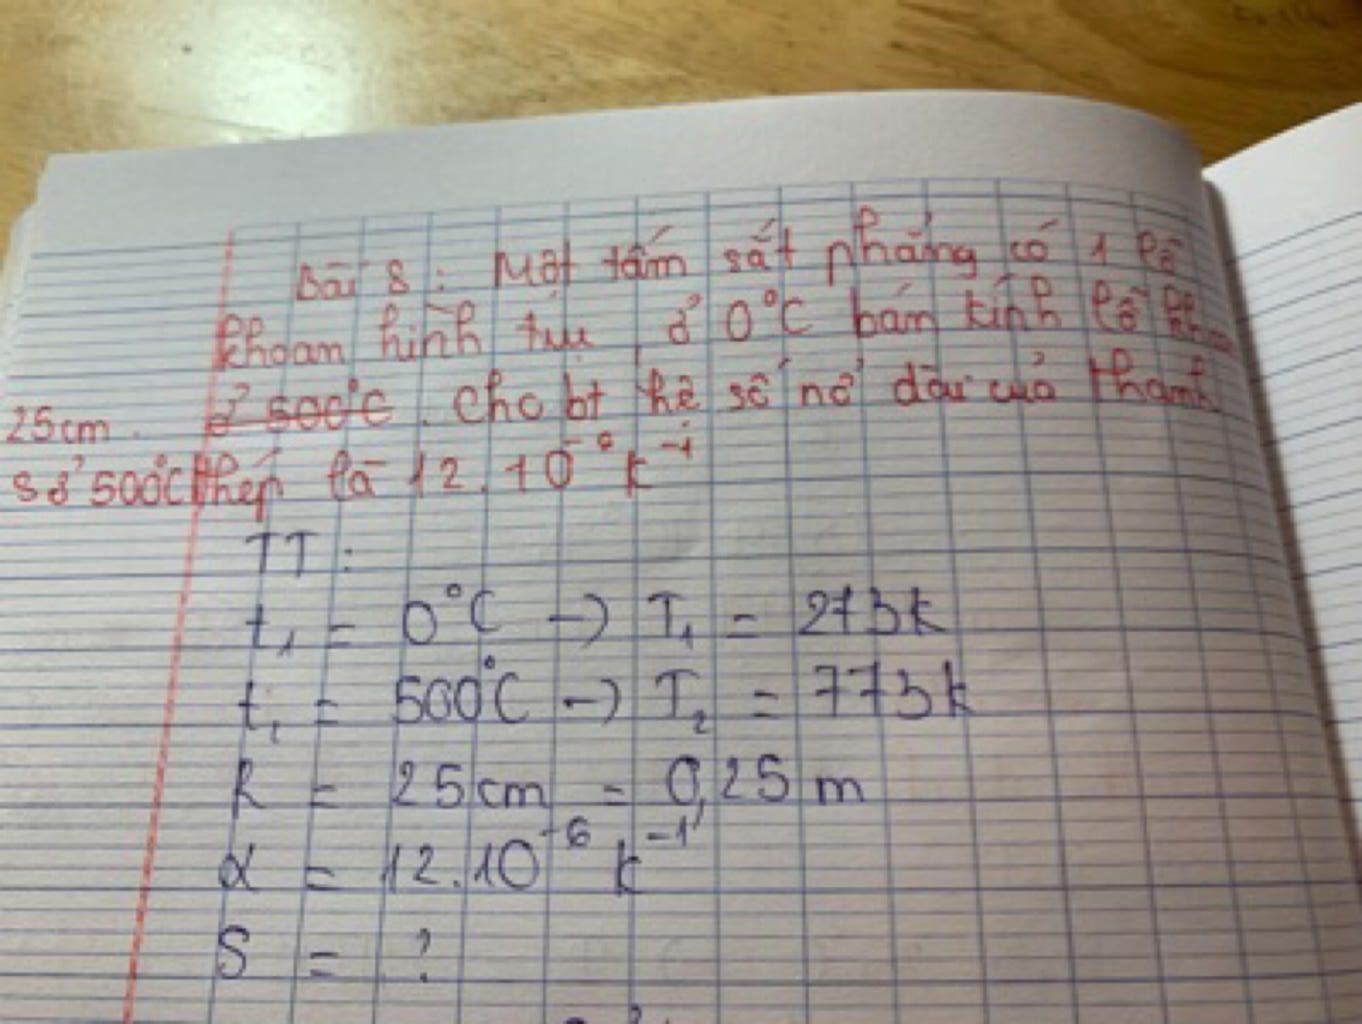 Bài 8: Một tấm sắt phẳng có 1 lỗ
khoan hình trụ, ở 0°C bán kính lỗ khoan
25cm. ở 500°C. Cho bt hệ số nở dài của thanh
S ở 500°C thép là 12.10⁻⁶ k⁻¹
TT:
t₁ = 0°C → T₁ = 273k
t₂ = 500°C → T₂ = 773k
R = 25cm = 0,25 m
α = 12.10⁻⁶ k⁻¹
S = ?